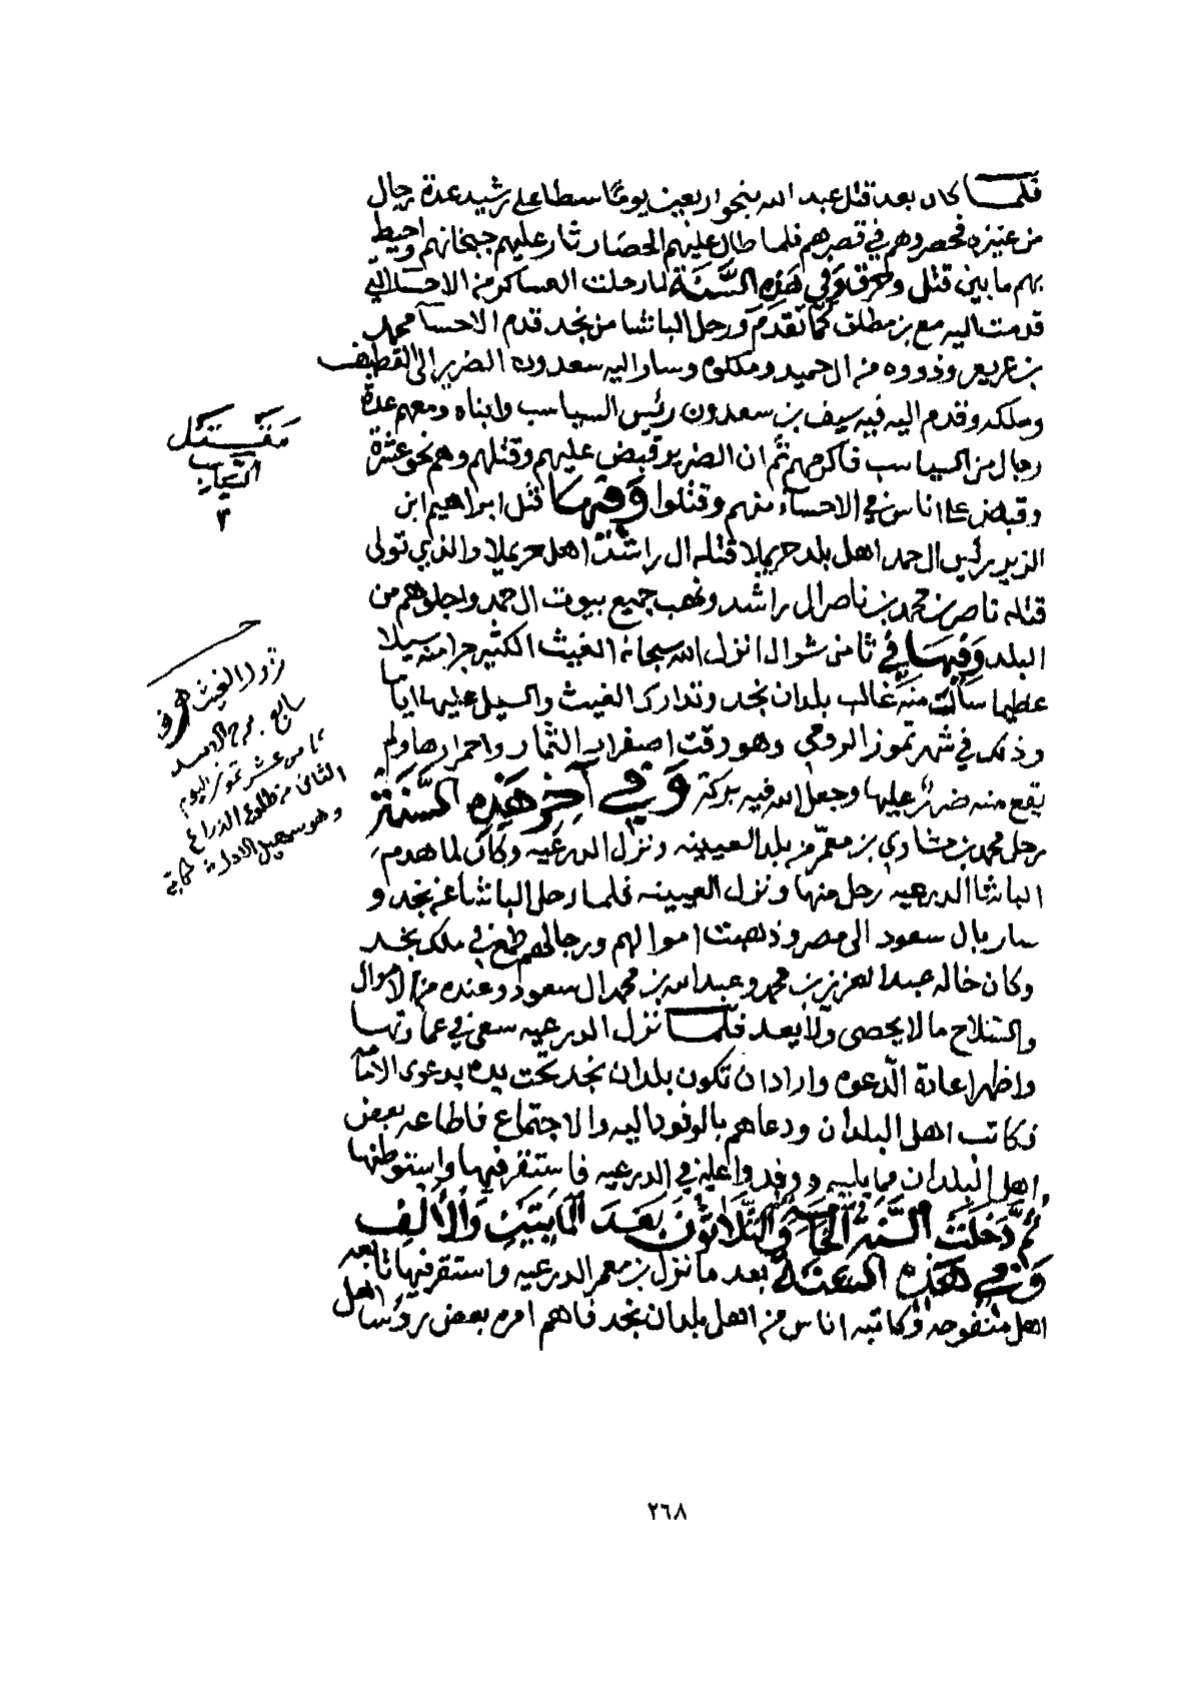 فلما كان بعد قتل عبد الله بنحو اربعين يومًا سطا على رشيد عدة رجال
من عنيزه فحصروهم في قصرهم فلما طال عليهم الحصار ثار عليهم جبخانهم واحيط
بهم ما بين قتل وحرق وَفي هَذِهِ السَّنَة لما رحلت العساكر من الاحسا التي
قدمت اليه مع بن مطلق كما تقدم ورحل الباشا من نجد قدم الاحسآ محمد
بن عريعر وذووه من ال حميد وملكوه وسار اليه سعدون الضرير الى القطيف
وملكه وقدم اليه فيه سيف بن سعدون رئيس السياسب وابناه ومعهم عدة
رجال من السياسب فاكرمهم ثم ان الضرير قبض عليهم وقتلهم وهم نحو عشرة
وقبض على اناس في الاحساء منهم وقتلوا وَفيهَا قتل ابراهيم ابن
الزير رئيس ال حمد اهل بلد حريملا قتله ال راشد اهل حريملا والذي تولى
قتله ناصر بن محمد بن ناصر ال راشد ونهب جميع بيوت ال حمد واجلوهم من
البلد وَفيهَا في ثامن شوال انزل الله سبحانه الغيث الكثير جرا منه سيلا
عظيما سالت منه غالب بلدان نجد وتدارك الغيث والسيل عليها اياما
وذلك في شهر تموز الرومي وهو وقت اصفرار الثمار واحمرارها ولم
يقع منه ضرر عليها وجعل الله فيه بركة وَفي آخِر هَذِهِ السَّنَة
رحل محمد بن مشاري بن معمر من بلد العيينه ونزل الدرعيه وكان لما هدم
الباشا الدرعيه رحل منها ونزل العيينه فلما رحل الباشا عن نجد و
سار بال سعود الى مصر وذهبت اموالهم ورجالهم طمع في ملك نجد
وكان خاله عبد العزيز بن محمد وعبد الله بن محمد ال سعود وعنده من الاموال
والسلاح ما لا يحصى ولا يعد فلما نزل الدرعيه سعى في عمارتها
واظهر اعادة الدعوه واراد ان تكون بلدان نجد تحت يده بدعوى الامامه
فكاتب اهل البلدان ودعاهم بالوفود اليه والاجتماع فاطاعه بعض
اهل البلدان مما يليه ووفدوا عليه في الدرعيه فاستقر فيها واستوطنها
ثم دَخَلَت السَّنة الخَامسَة وَالثلَاثونَ بَعدَ المَايتَين وَالألف
وَفي هَذِهِ السَنة بعد ما نزل بن معمر الدرعيه واستقر فيها تابعه
اهل منفوحه وكاتبه اناس من اهل بلدان نجد فاهم امره بعض رؤسا اهل
مَقتل
السياسب
٢
نزول الغيث
رابع برج الاسد
ثامن عشر تموز اليوم
الثاني من طلوع الذراع
وهو سهيل
٢٦٨